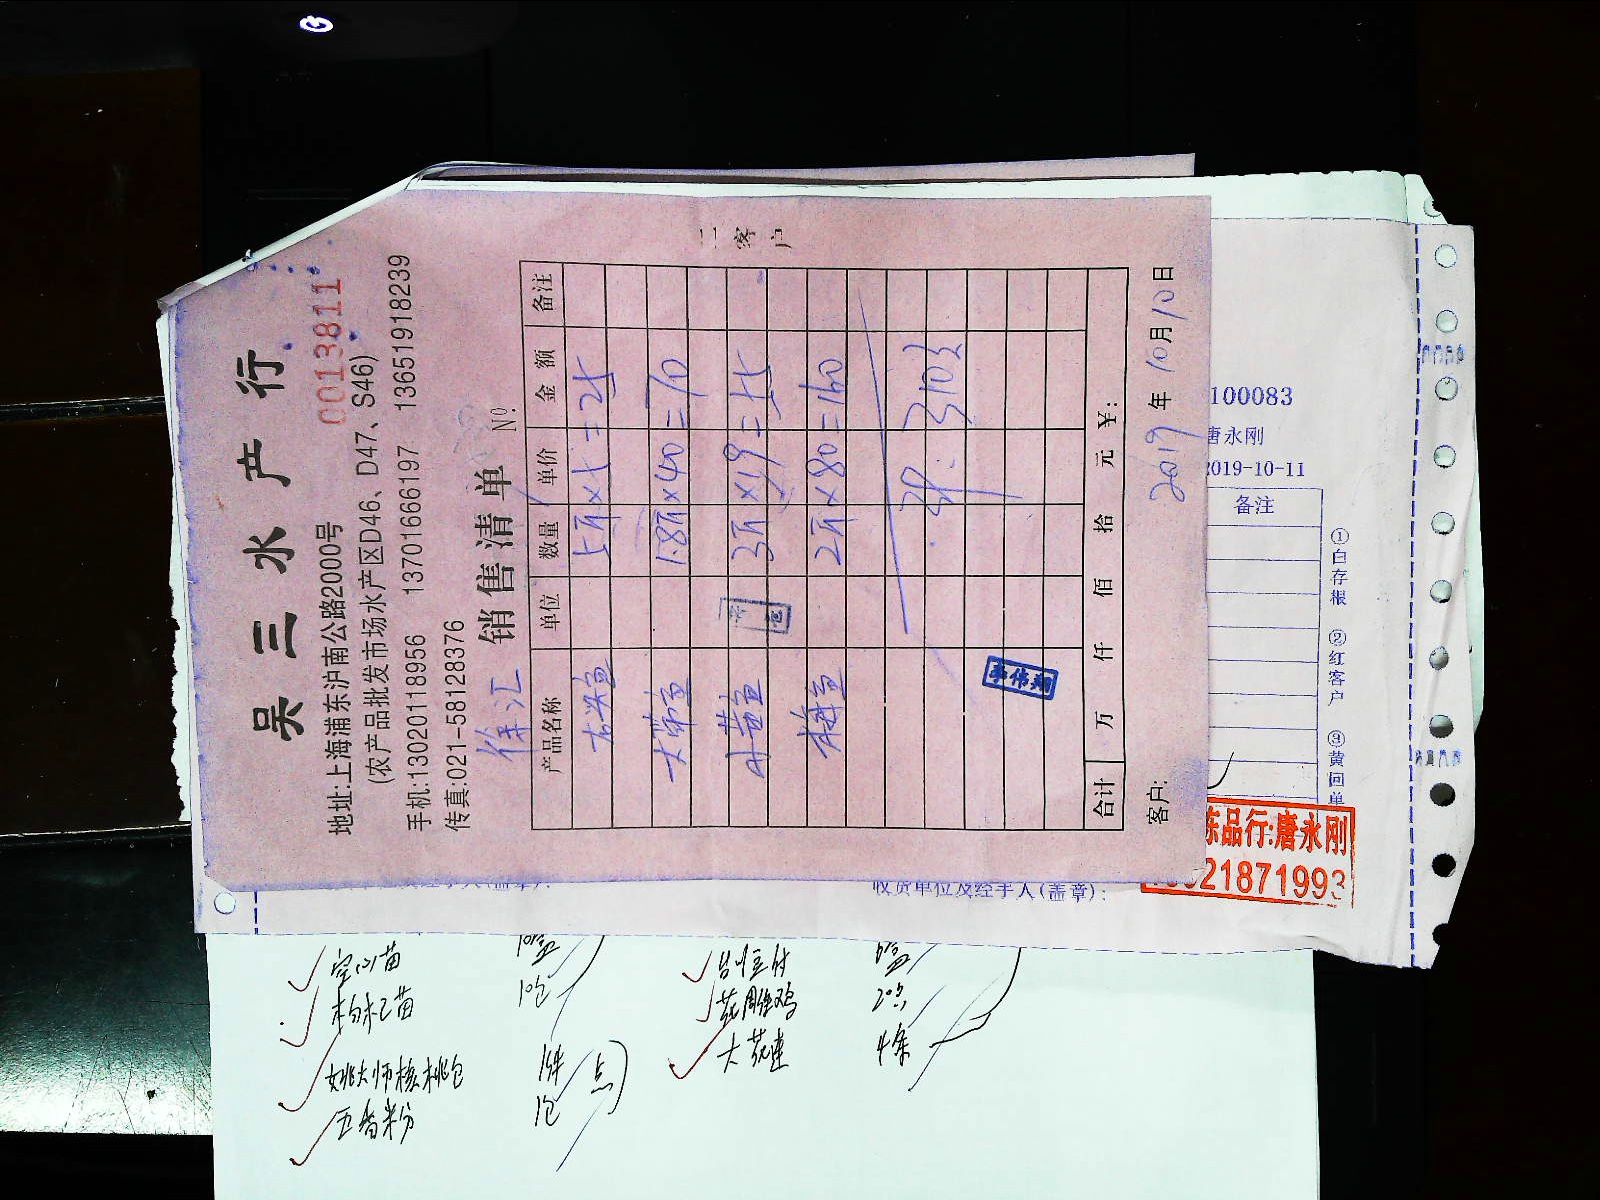 吴三水产行
0013811
地址:上海浦东沪南公路2000号
(农产品批发市场水产区D46、D47、S46)
手机:13020118956 13701666197 13651918239
传真:021-58128376
销售清单 NO:
徐汇
产品名称 单位 数量 单价 金额 备注
5斤×5=25
大带鱼 1.8斤×40=70
小黄鱼 3斤×19=55
梅鱼 2斤×80=160
310
李伟翔
合计 万 仟 佰 拾 元 ¥:
客户: 2019年10月10日
二 客户
100083
唐永刚
2019-10-11
备注
①白存根 ②红客户 ③黄回单
冻品行:唐永刚
21871993
收货单位及经手人(盖章):
空心苗 10盒
枸杞苗 10包
姚大师核桃包 1件
五香米分 1包
点
6盒
花雕鸡 2只
大花连 4条